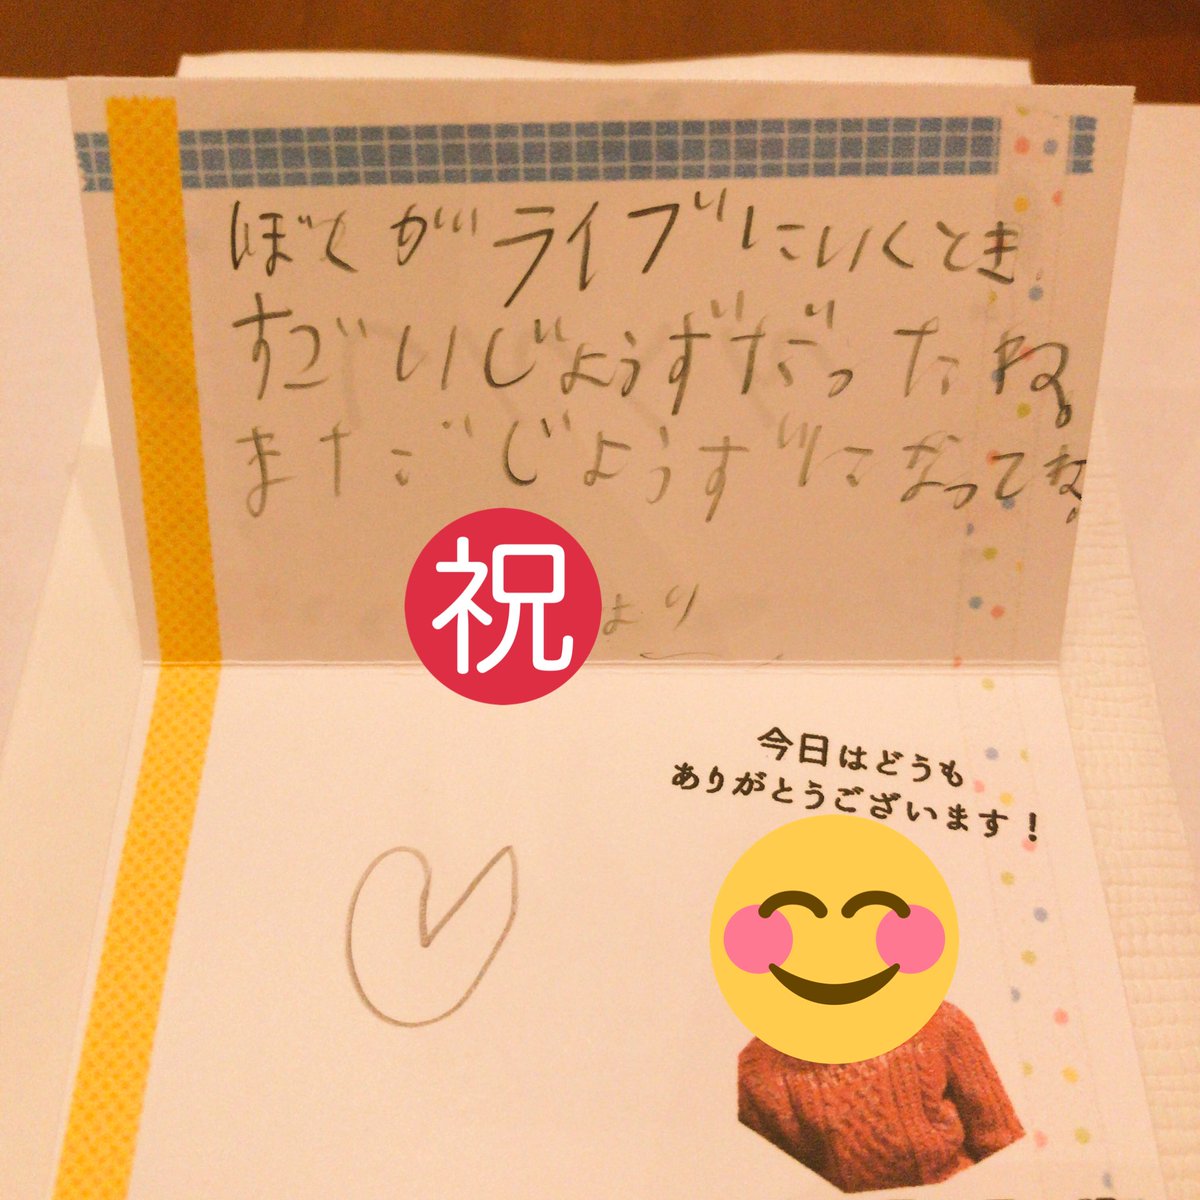 ぼくがライブにいくとき
すごいじょうずだったね。
まだじょうずになってね。
祝
より
今日はどうも
ありがとうございます！